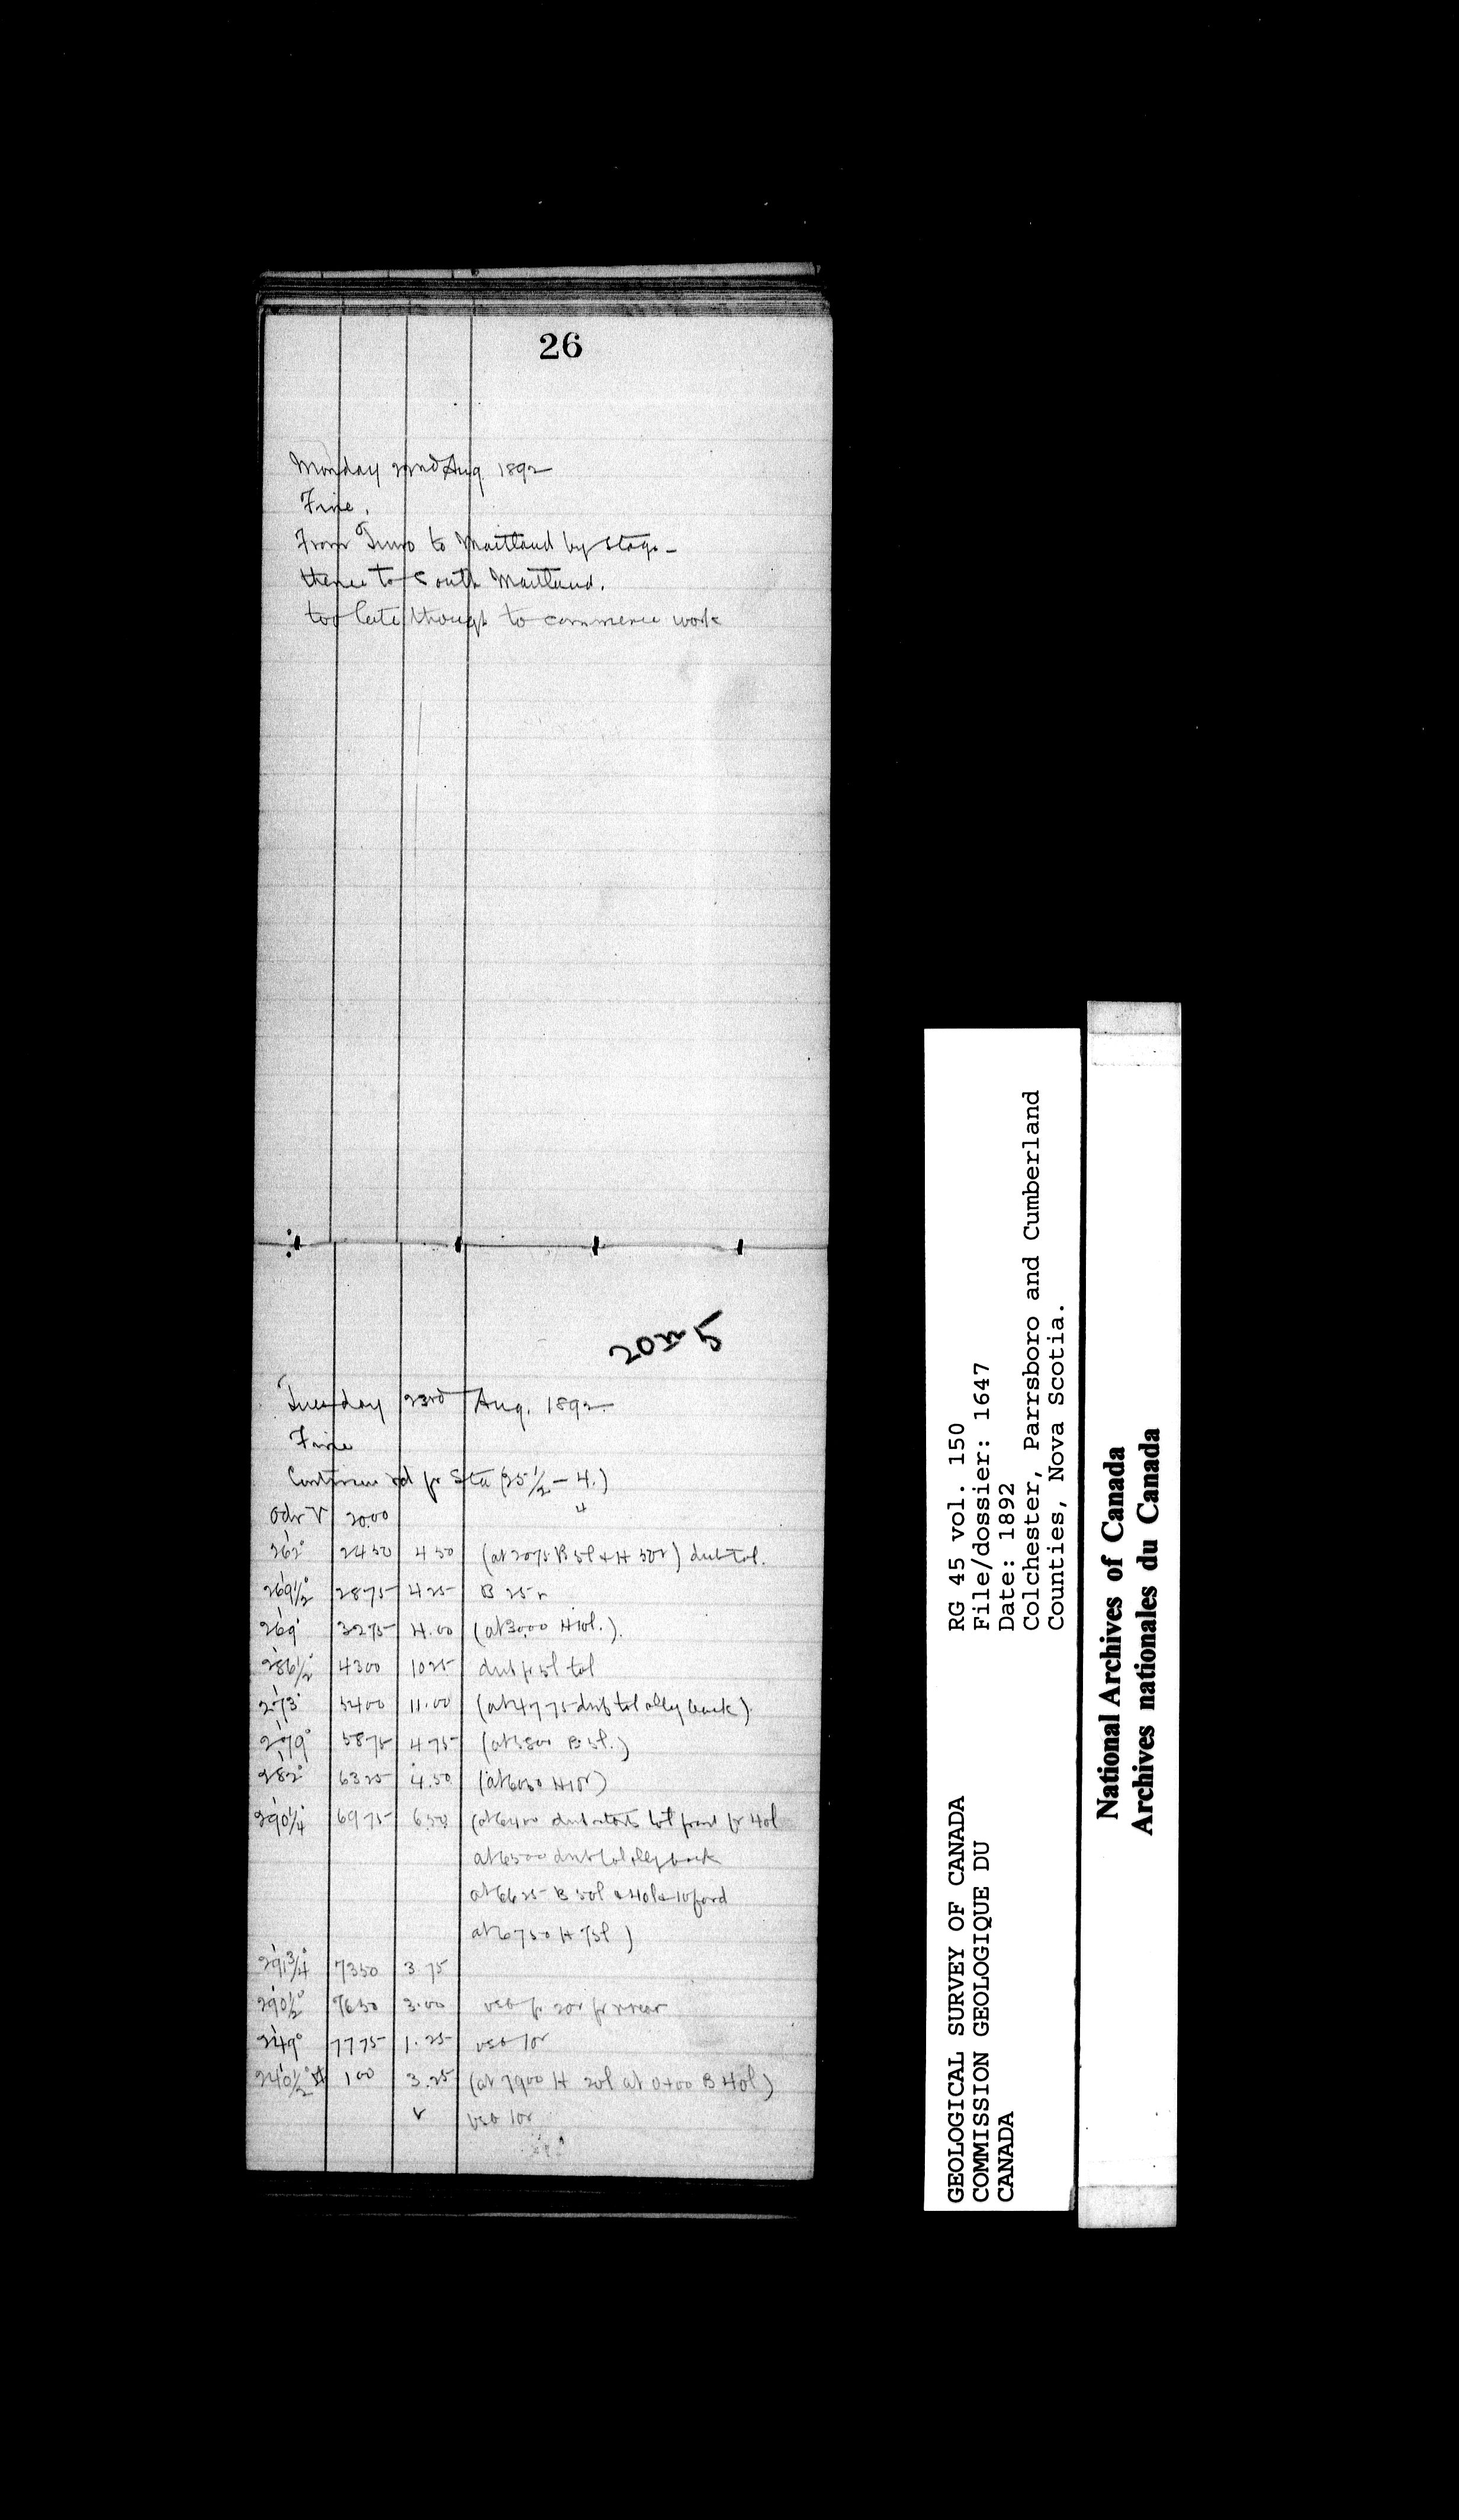 26
Monday 22nd Aug 1892
Fine.
From Truro to Maitland by stage -
thence to South Maitland.
too late though to commence work
20m 5
Tuesday 23rd Aug. 1892
Fine
Continue rd fr Sta (25½ - 4.)
odr 2000 4
262° 2450 4 50 (at 2075 B 5l & H 50r) dub tol.
269½° 2875 4 25 B 25 r
269° 3275 4.00 (at 3000 H 10l.).
286½° 4300 10 25 dub fr 5l tol
273° 5400 11.00 (at 4775 dub tol ally back).
279° 5875 4 75 (at 5800 B 5l.)
282° 6325 4.50 (at 6050 H 10r)
290¼° 6975 6.50 (at 6400 dub starts fr 40l
at 6500 dub back
at 6625 B 50l & 40l & 10 ford
at 6750 H 75l)
291¾° 7350 3.75
290½° 7650 3.00 vso fr 20r
249° 7775 1.25 vso 10r
240½° 100 3.25 (at 7900 H 20l at 0+00 B 40l)
vso 10r
GEOLOGICAL SURVEY OF CANADA
COMMISSION GEOLOGIQUE DU
CANADA
RG 45 vol. 150
File/dossier: 1647
Date: 1892
Colchester, Parrsboro and Cumberland
Counties, Nova Scotia.
National Archives of Canada
Archives nationales du Canada